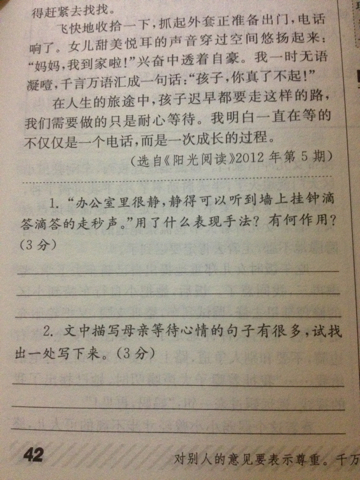 得赶紧去找找。
飞快地收拾一下，抓起外套正准备出门，电话
响了。女儿甜美悦耳的声音穿过空间悠扬起来：
“妈妈，我到家啦！”兴奋中透着自豪。我一时无语
凝噎，千言万语汇成一句话：“孩子，你真了不起！”
在人生的旅途中，孩子迟早都要走这样的路，
我们需要做的只是耐心等待。我明白一直在等的
不仅仅是一个电话，而是一次成长的过程。
（选自《阳光阅读》2012年第5期）
1. “办公室里很静，静得可以听到墙上挂钟滴
答滴答的走秒声。”用了什么表现手法？有何作用？
（3分）
2. 文中描写母亲等待心情的句子有很多，试找
出一处写下来。（3分）
42
对别人的意见要表示尊重。千万